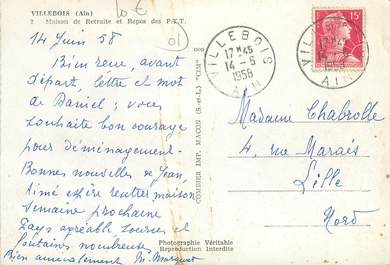 VILLEBOIS (Ain)
2 Maison de Retraite et Repos des P.T.T.
14 Juin 58
Bien reçu, avant
départ, lettre et mot
de Daniel ; vous
souhaite bon courage
pour déménagement.
Bonnes nouvelles de Jean,
Aimé espère rentrer maison
semaine prochaine
Pays agréable sources et
fontaines nombreuses,
Bien amicalement M.
COMBIER IMP. MACON (S.-et-L.) "CIM"
Photographie Véritable
Reproduction Interdite
VILLEBOIS
17H45
14-6
1958
AIN
15F
Madame Chabrolle
4, rue Marais
Lille
Nord